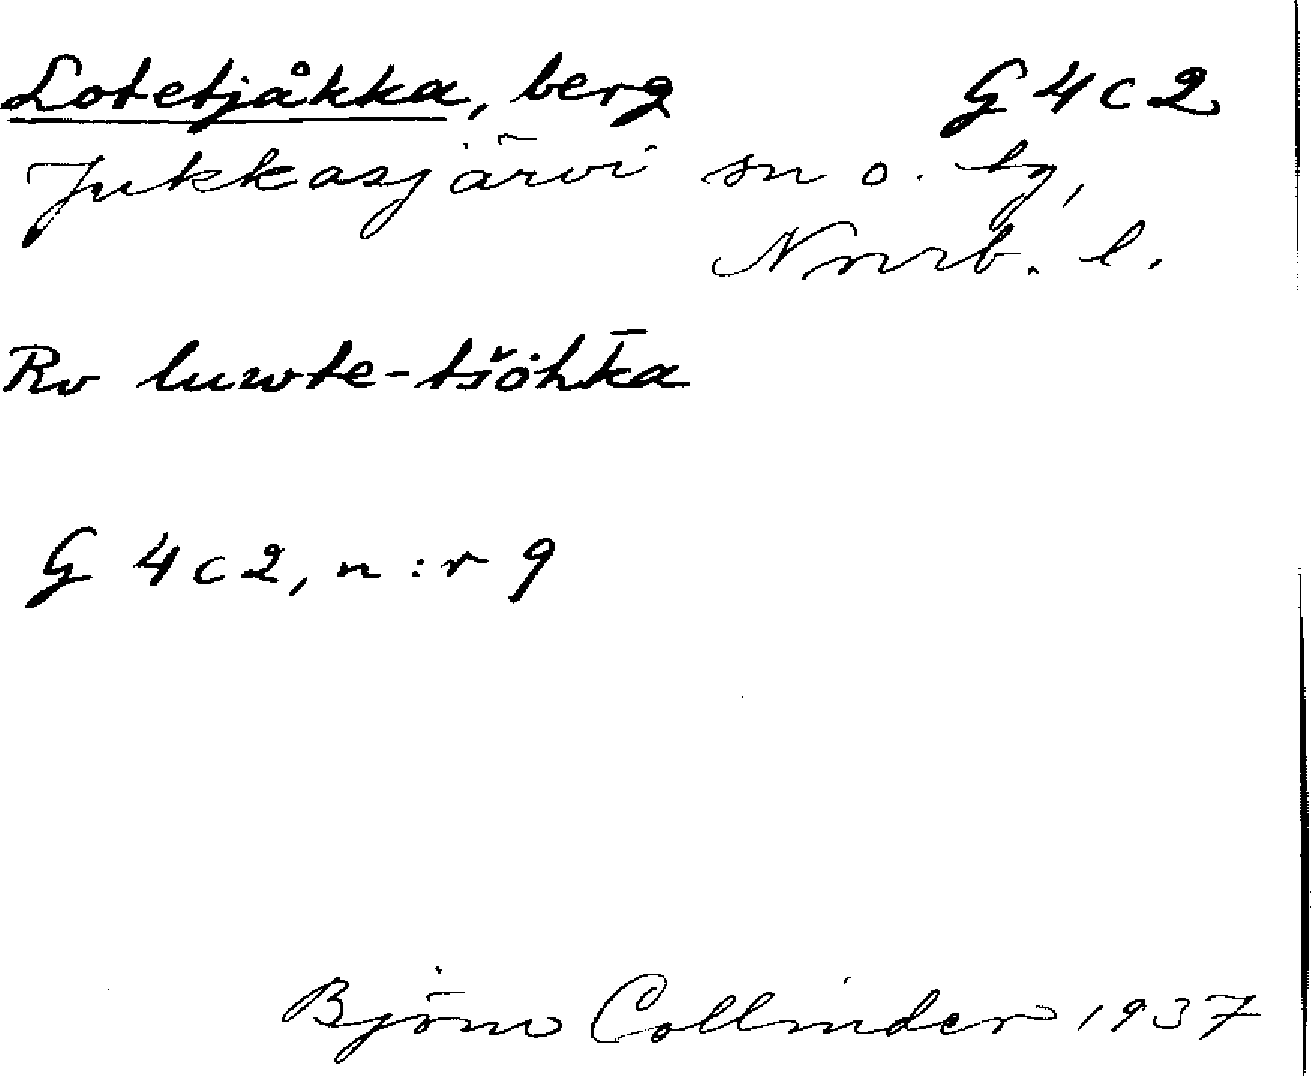 Lotetjåkka, berg G4c2
Jukkasjärvi sn o. tg,
Norrb. l.
Rv luwte-tšòht̄a
G 4c2, n:r 9
Björn Collinder 1937